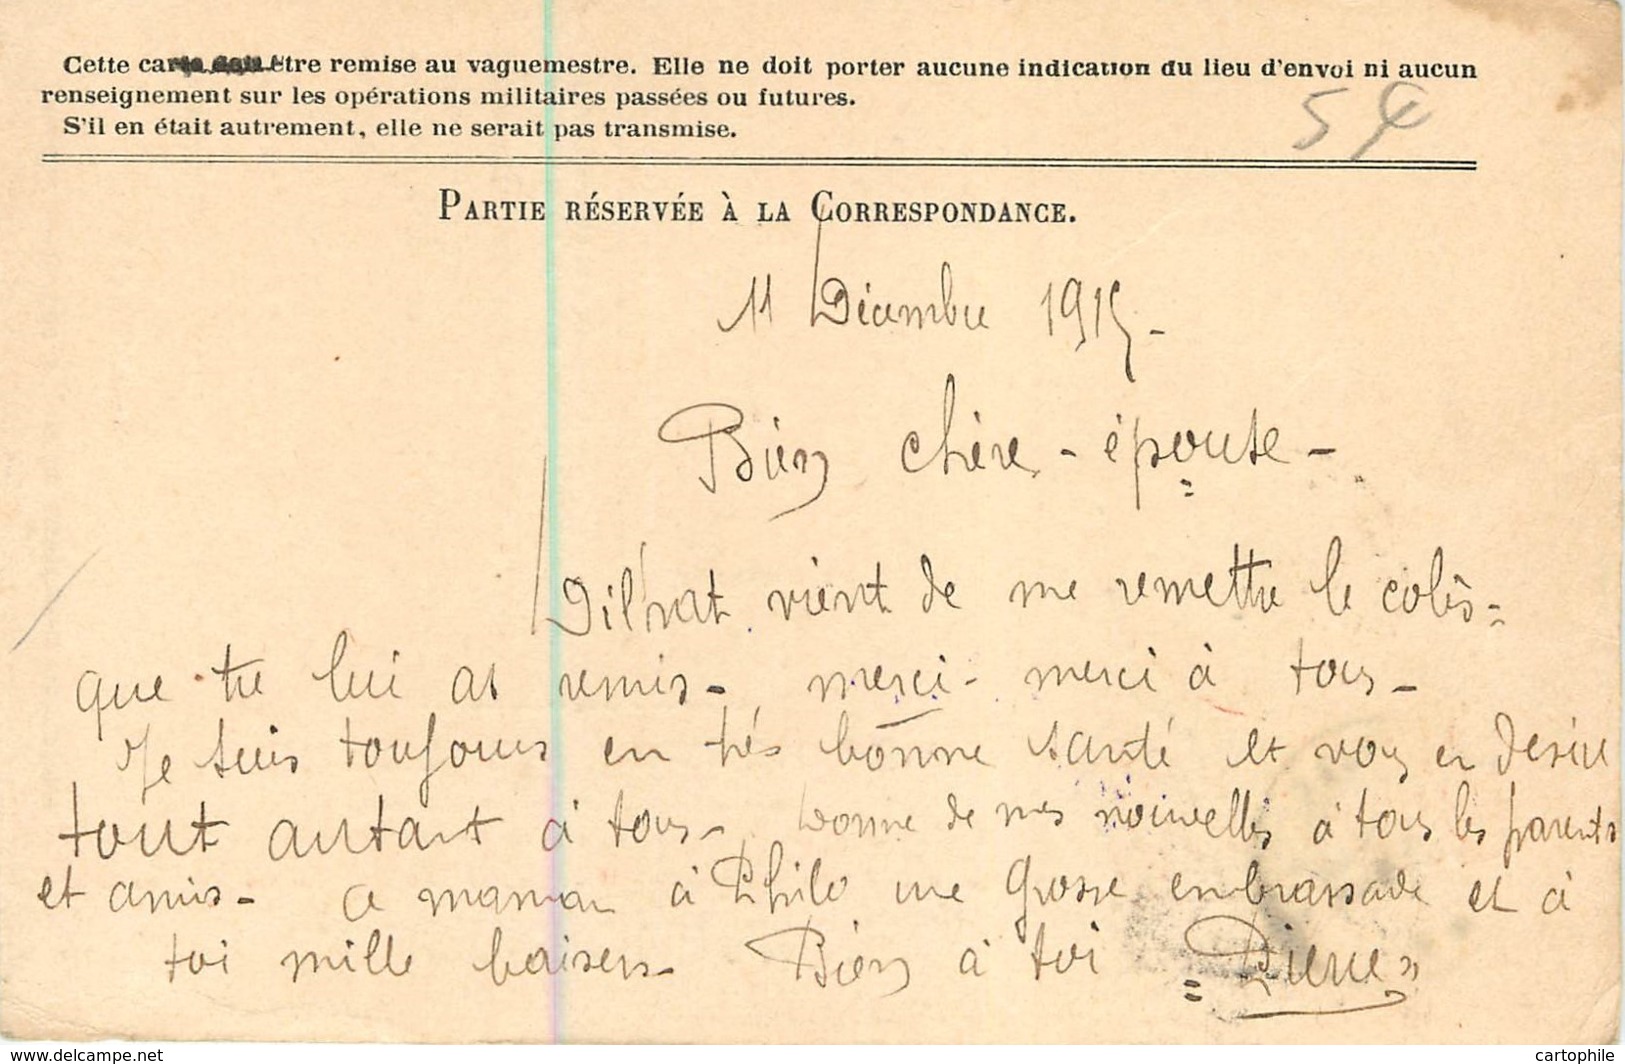 Cette carte doit être remise au vaguemestre. Elle ne doit porter aucune indication du lieu d'envoi ni aucun
renseignement sur les opérations militaires passées ou futures.
S'il en était autrement, elle ne serait pas transmise.
54
PARTIE RÉSERVÉE À LA CORRESPONDANCE.
11 Décembre 1915 -
Bien chère - épouse -
vient de me remettre le colis -
que tu lui as remis - merci - merci à tous -
Je suis toujours en très bonne santé et vous en désire
tout autant à tous - Donne de mes nouvelles à tous les parents
et amis - a maman à Philo une grosse embrassade et à
toi mille baisers - Bien à toi Pierre
www.delcampe.net
cartophile